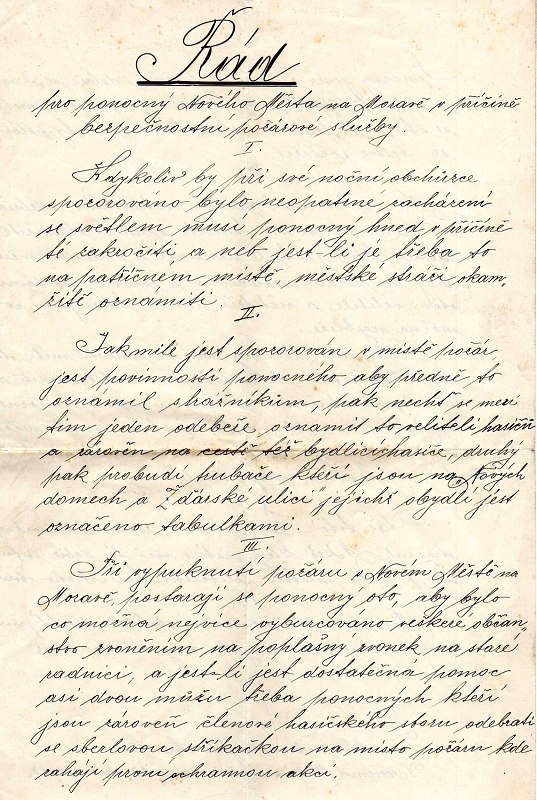 Řád
pro ponocný Nového Města na Moravě v příčině
bezpečnostní požárové služby.
I.
Kdykoliv by při své noční obchůzce
spozorováno bylo neopatrné zacházení
se světlem musí ponocný hned v příčině
té zakročiti, a neb jest-li je třeba to
na patřičném místě, městské stráži okam„
žitě oznámiti.
II.
Jakmile jest spozorován v místě požár,
jest povinností ponocného aby předně to
oznámil strážníkům, pak nechť se mezi
tím jeden odebéře oznamit to veliteli hasičů
a zárověn na cestě též bydlících hasiče, druhý
pak probudí trubače kteří jsou na Nových
domech a Žďárské ulici jejichž obydlí jest
označeno tabulkami.
III.
Při vypuknutí požáru v Novém Městě na
Moravě, postarají se ponocný oto, aby bylo
co možna nejvíce vyburcováno veškeré občan„
stvo zvoněním na poplašný zvonek na staré
radnici, a jest-li jest dostatečná pomoc
asi dvou mužu třeba ponocných kteří
jsou zároveň členové hasičského sboru odebrati
se sberlovou stříkačkou na místo požáru kde
zahájí první ochrannou akci.